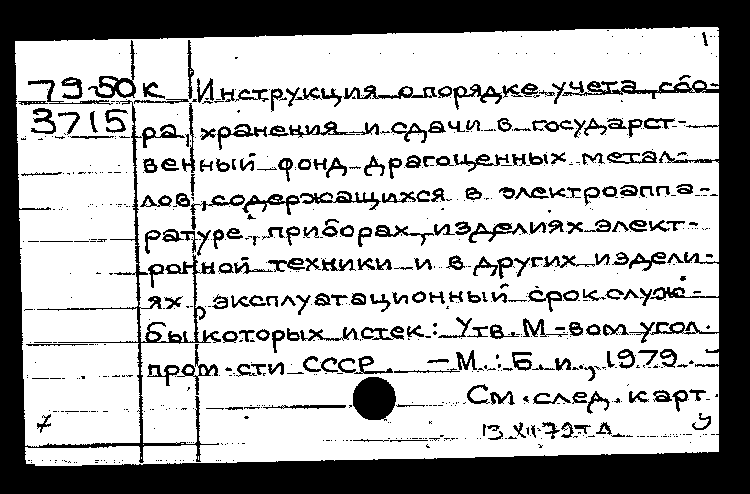 1
79-50к Инструкция о порядке учета, сбо-
3715 ра, хранения и сдачи в государст-
венный фонд драгоценных метал-
лов, содержащихся в электроаппа-
ратуре, приборах, изделиях элект-
ронной техники и в других издели-
ях, эксплуатационный срок служ-
бы которых истек: Утв. М-вом угол.
пром-сти СССР. — М.: Б. и., 1979. -
См. след. карт.
13 XII 79